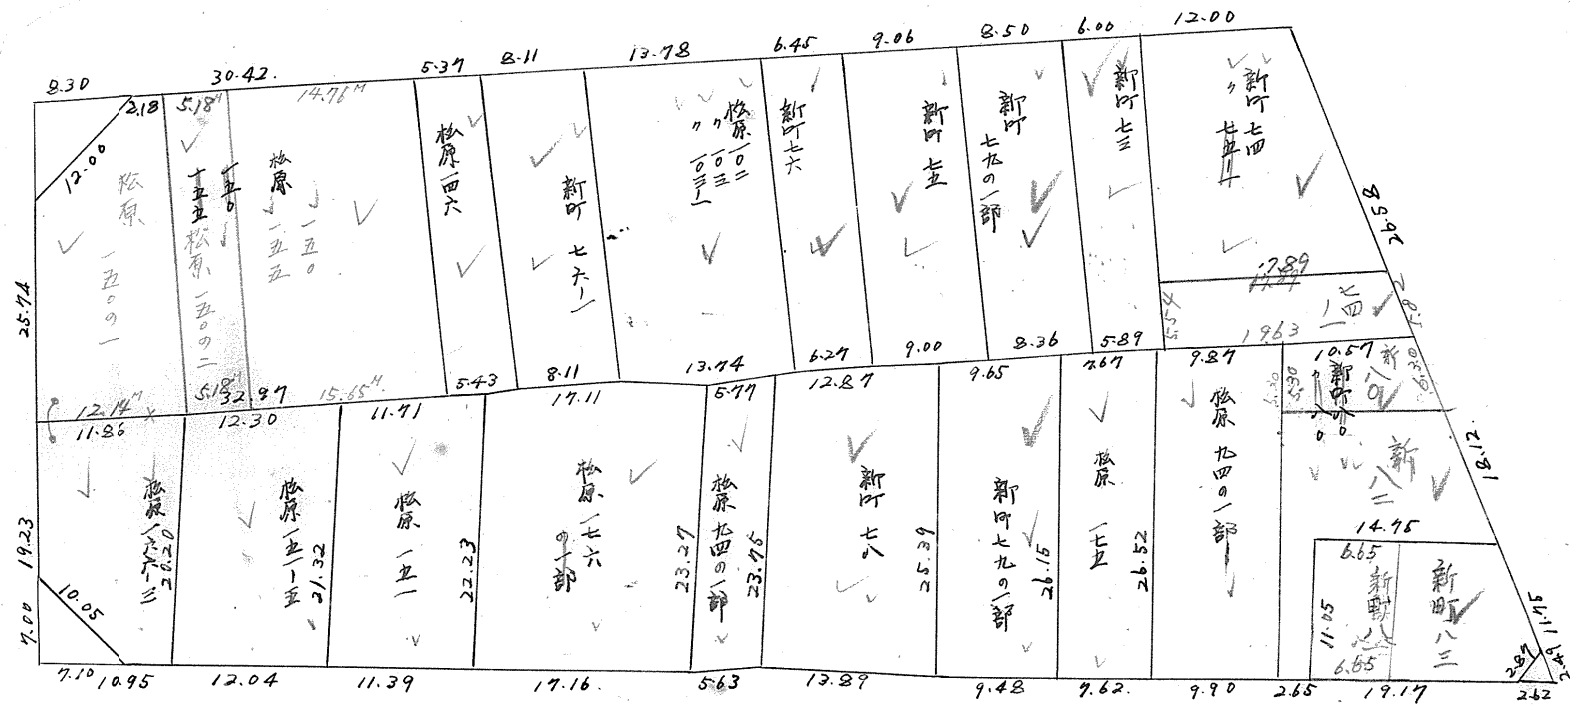 8.30
30.42.
5.37
8.11
13.78
6.45
9.06
8.50
6.00
12.00
2.18
5.18
14.76
12.00
松原
一五〇の一
一五五
一五〇
松原 一五〇の二
松原
一五五
一五〇
松原 一四六
新町 七六ノ一
松原 一〇二
〃 一〇三
〃 一〇三ノ一
新町 七六
新町 七五
新町
七九の一部
新町 七三
新町 七四
〃 七五ノ一
26.58
25.74
17.89
5.54
七四ノ一
5.82
19.63
12.14
5.18
32.97
15.65
5.43
8.11
13.74
6.27
9.00
8.36
5.89
11.86
12.30
11.71
17.11
5.77
12.87
9.65
7.67
9.87
10.57
5.30
5.30
6.30
18.12
19.23
20.20
松原 一五一ノ五
21.32
松原 一五一
22.23
松原 一七六
の一部
23.27
松原 九四の一部
23.75
新町
25.39
新町 七九の一部
26.15
松原 一七五
26.52
松原 九四の一部
新 八二
14.75
6.65
11.05
6.65
新町 八三
11.75
2.87
2.49
7.00
10.05
7.10
10.95
12.04
11.39
17.16.
5.63
13.89
9.48
7.62.
9.90
2.65
19.17
2.62